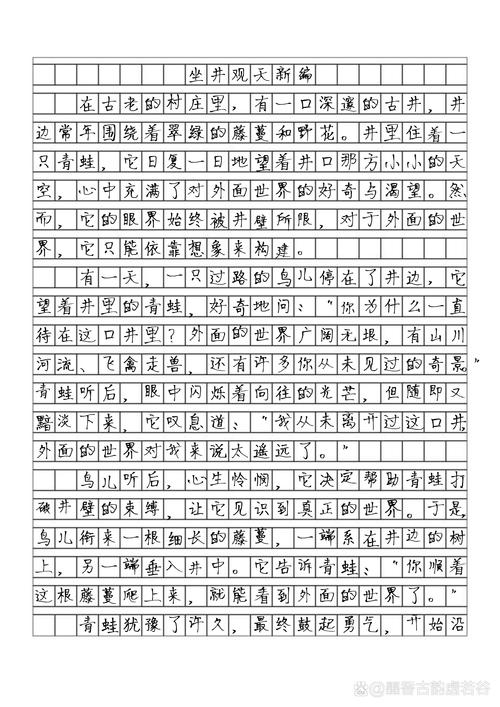 坐井观天新编
在古老的村庄里，有一口深邃的古井，井
边常年围绕着翠绿的藤蔓和野花。井里住着一
只青蛙，它日复一日地望着井口那方小小的天
空，心中充满了对外面世界的好奇与渴望。然
而，它的眼界始终被井壁所限，对于外面的世
界，它只能依靠想象来构建。
有一天，一只过路的鸟儿停在了井边，它
望着井里的青蛙，好奇地问：“你为什么一直
待在这口井里？外面的世界广阔无垠，有山川
河流、飞禽走兽，还有许多你从未见过的奇景。”
青蛙听后，眼中闪烁着向往的光芒，但随即又
黯淡下来，它叹息道：“我从未离开过这口井，
外面的世界对我来说太遥远了。”
鸟儿听后，心生怜悯，它决定帮助青蛙打
破井壁的束缚，让它见识到真正的世界。于是，
鸟儿衔来一根细长的藤蔓，一端系在井边的树
上，另一端垂入井中。它告诉青蛙：“你顺着
这根藤蔓爬上来，就能看到外面的世界了。”
青蛙犹豫了许久，最终鼓起勇气，开始沿